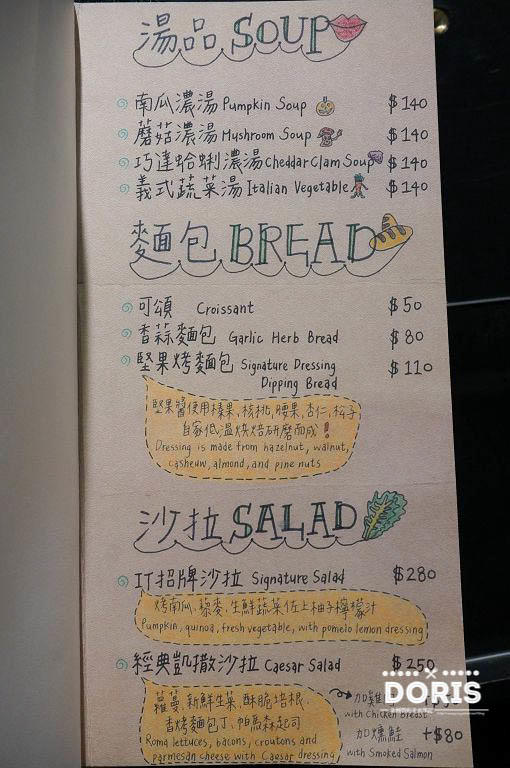 湯品 SOUP
南瓜濃湯 Pumpkin Soup $140
蘑菇濃湯 Mushroom Soup $140
巧達蛤蜊濃湯 Cheddar Clam Soup $140
義式蔬菜湯 Italian Vegetable $140
麵包 BREAD
可頌 Croissant $50
香蒜麵包 Garlic Herb Bread $80
堅果烤麵包 Signature Dressing $110
Dipping Bread
堅果醬使用榛果、核桃、腰果、杏仁、松子
自家低溫烘焙研磨而成!
Dressing is made from hazelnut, walnut,
cashewn, almond, and pine nuts
沙拉 SALAD
IT招牌沙拉 Signature Salad $280
烤南瓜、藜麥、生鮮蔬菜佐上柚子檸檬汁
Pumpkin, quinoa, fresh vegetable, with pomelo lemon dressing
經典凱撒沙拉 Caesar Salad $250
蘿蔓、新鮮生菜、酥脆培根、
香烤麵包丁、帕馬森起司
Roma lettuces, bacons, croutons and
parmesan cheese with Caesar dressing
加雞
with Chicken Breast
加燻鮭 +$80
with Smoked Salmon
DORIS